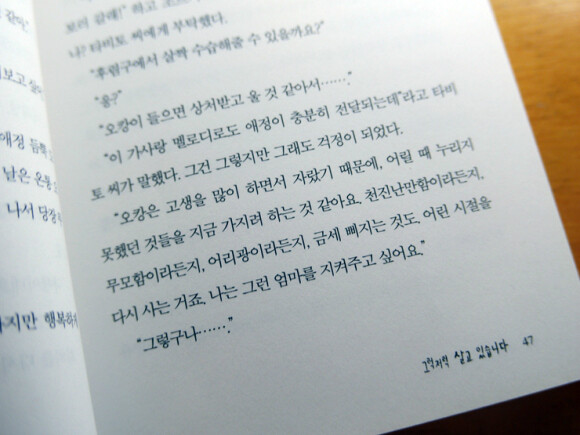 토리 갈래!” 하고
나? 타비토 씨에게 부탁했다.
“후렴구에서 살짝 수습해줄 수 있을까요?”
“응?”
“오캉이 들으면 상처받고 울 것 같아서……”
“이 가사랑 멜로디로도 애정이 충분히 전달되는데”라고 타비
토 씨가 말했다. 그건 그렇지만 그래도 걱정이 되었다.
“오캉은 고생을 많이 하면서 자랐기 때문에, 어릴 때 누리지
못했던 것들을 지금 가지려 하는 것 같아요. 천진난만함이라든지,
무모함이라든지, 어리광이라든지, 금세 삐지는 것도. 어린 시절을
다시 사는 거죠. 나는 그런 엄마를 지켜주고 싶어요.”
“그렇구나……”
그럭저럭 살고 있습니다 47
보고
애정 듬뿍
낡은 온통
나서 당장
지만 행복하